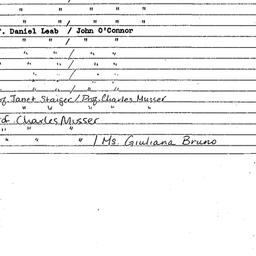 " " / " "
. Daniel Leab / John O'Connor
" " / " "
" " / " "
" " / " "
" " / " "
" " / " "
of. Janet Staiger / Prof. Charles Musser
" " " " "
of. Charles Musser
" " "
" " " / Ms. Giuliana Bruno